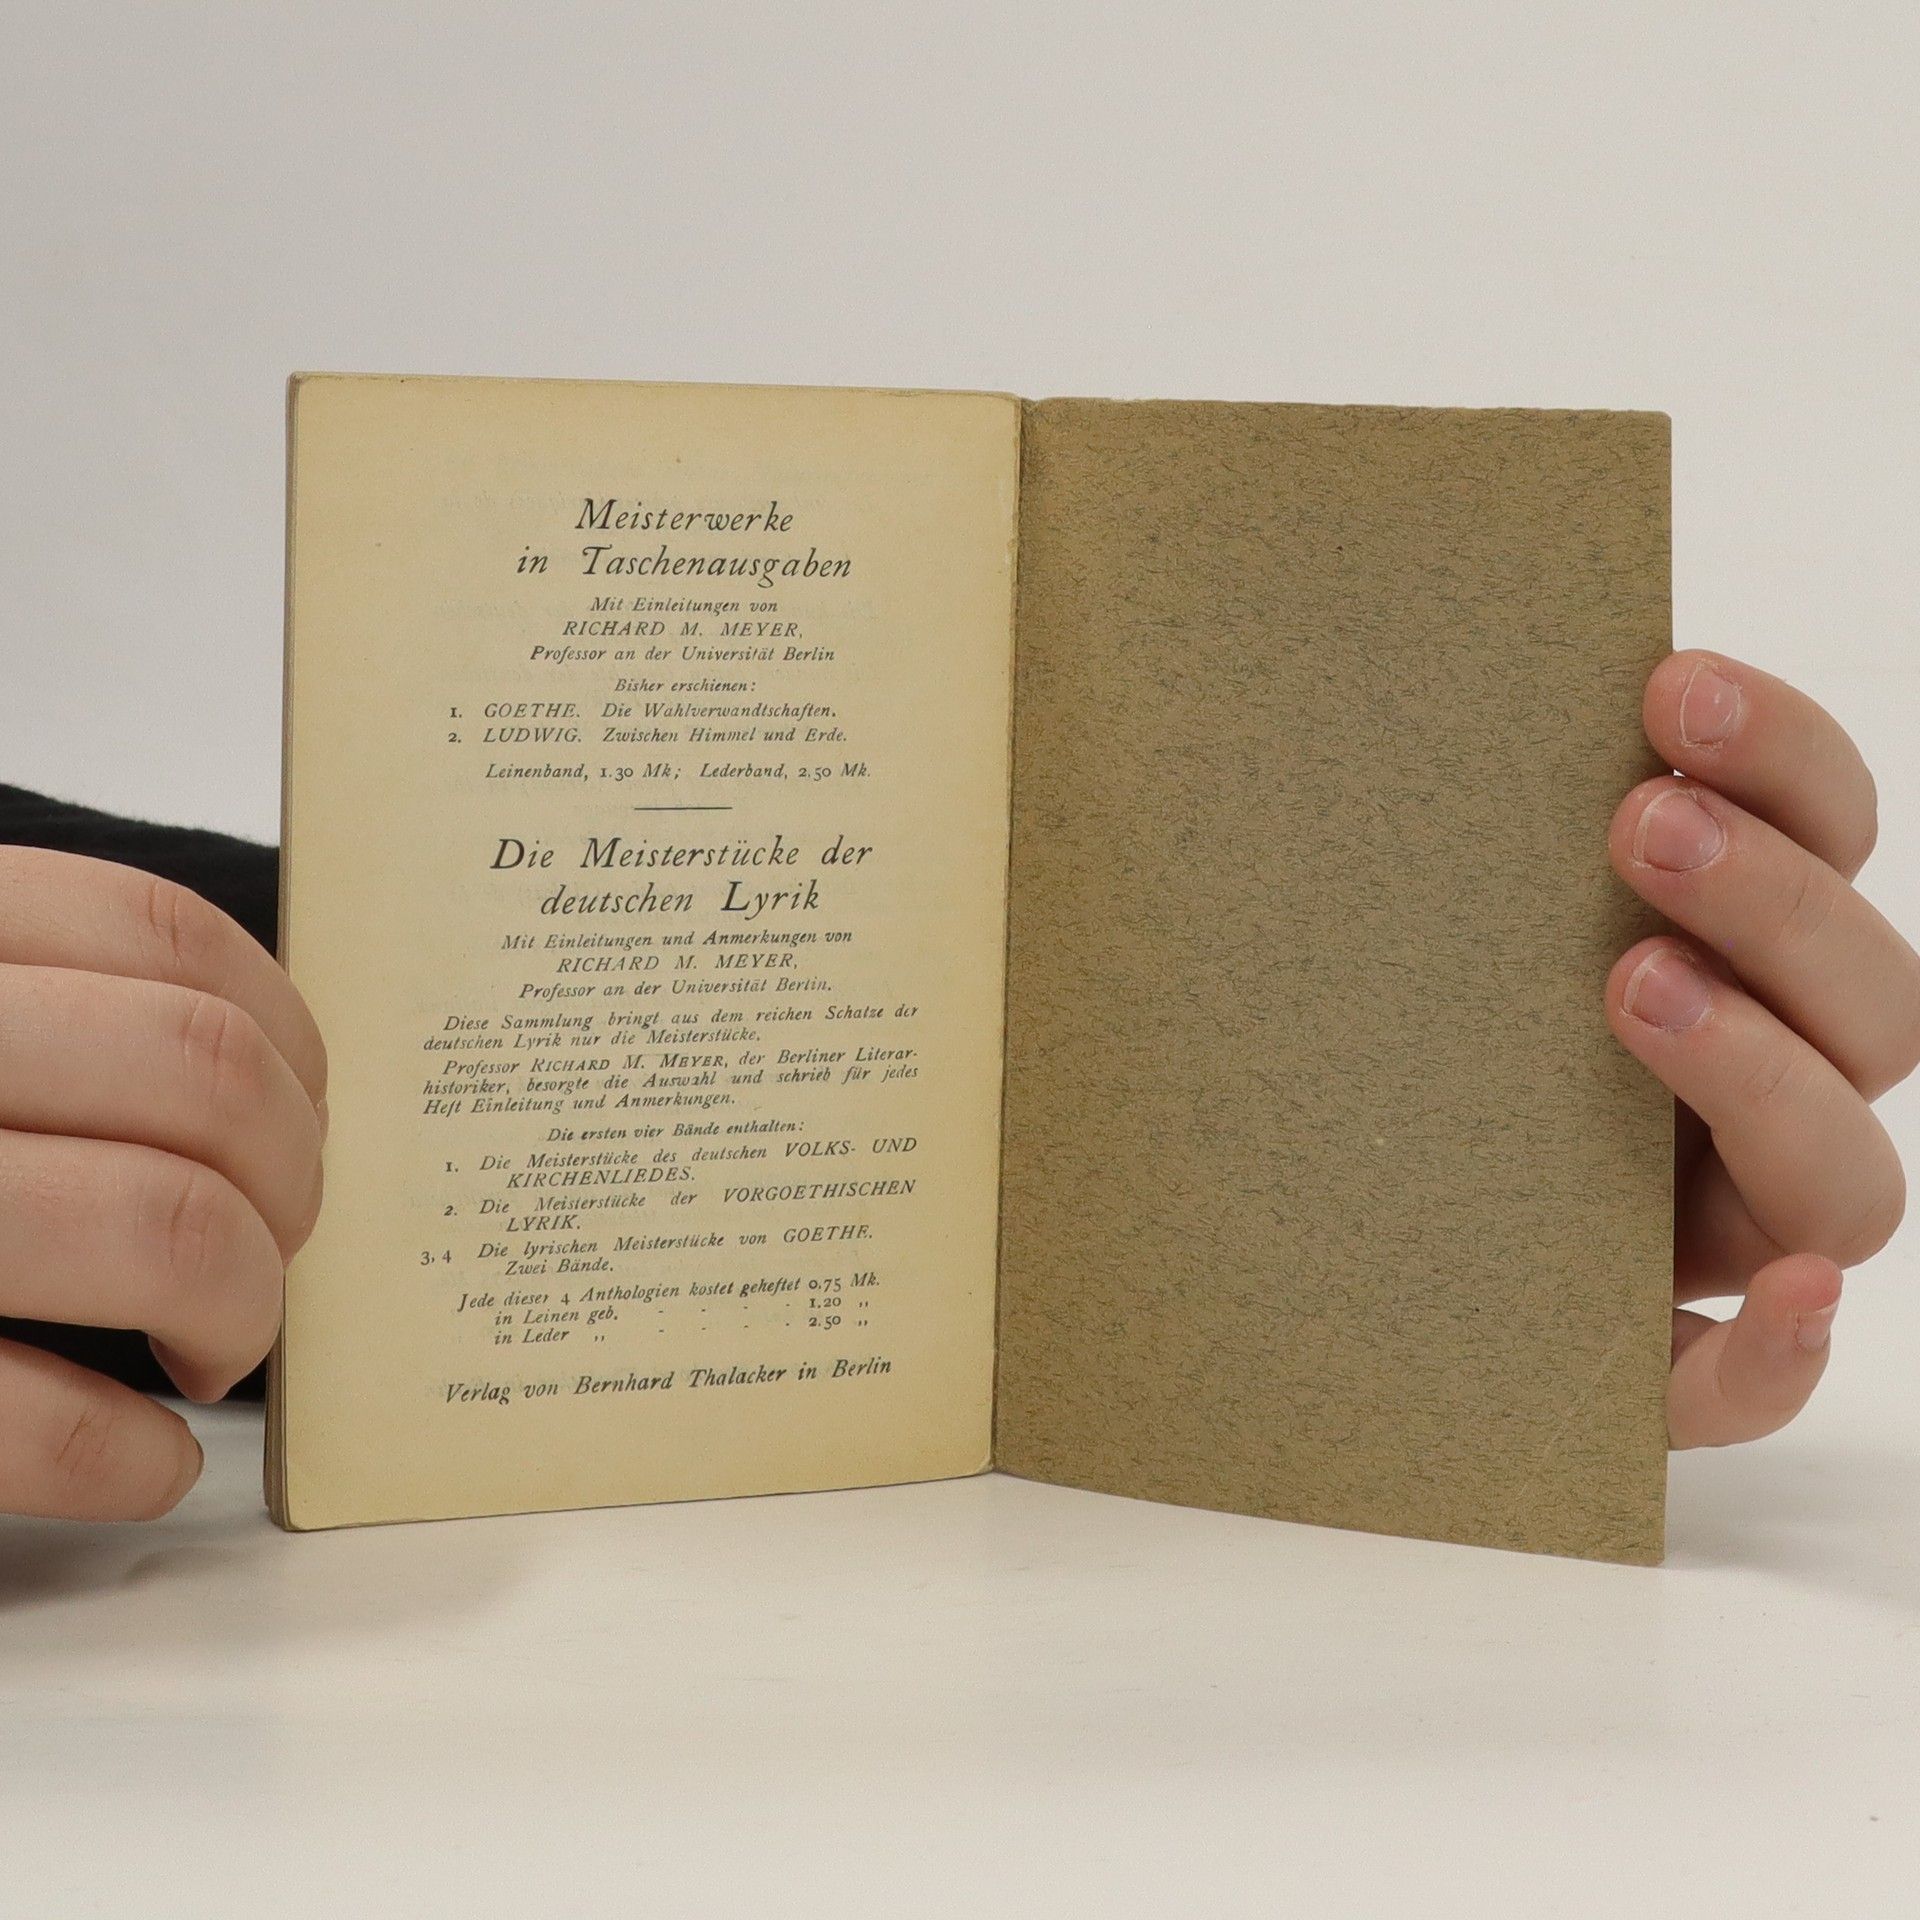 Meisterwerke
in Taschenausgaben
Mit Einleitungen von
RICHARD M. MEYER,
Professor an der Universität Berlin
Bisher erschienen:
1. GOETHE. Die Wahlverwandtschaften.
2. LUDWIG. Zwischen Himmel und Erde.
Leinenband, 1.30 Mk; Lederband, 2.50 Mk.
Die Meisterstücke der
deutschen Lyrik
Mit Einleitungen und Anmerkungen von
RICHARD M. MEYER,
Professor an der Universität Berlin.
Diese Sammlung bringt aus dem reichen Schatze der
deutschen Lyrik nur die Meisterstücke.
Professor RICHARD M. MEYER, der Berliner Literar-
historiker, besorgte die Auswahl und schrieb für jedes
Heft Einleitung und Anmerkungen.
Die ersten vier Bände enthalten:
1. Die Meisterstücke des deutschen VOLKS- UND
KIRCHENLIEDES.
2. Die Meisterstücke der VORGOETHISCHEN
LYRIK.
3, 4 Die lyrischen Meisterstücke von GOETHE.
Zwei Bände.
Jede dieser 4 Anthologien kostet geheftet 0.75 Mk.
in Leinen geb. - - - - 1.20 „
in Leder „ - - - - 2.50 „
Verlag von Bernhard Thalacker in Berlin